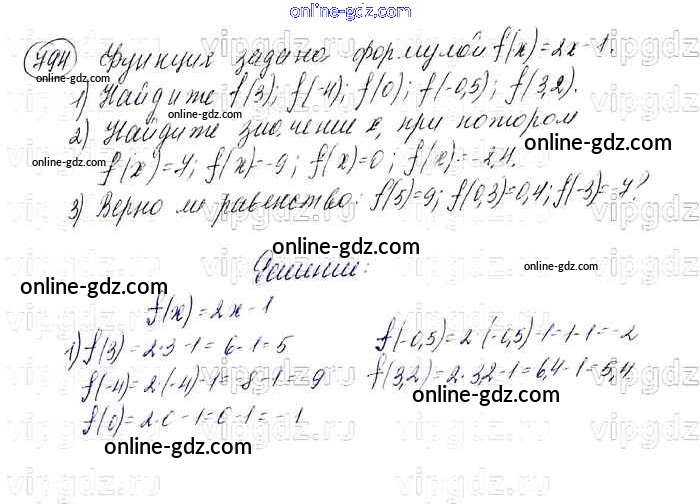 online-gdz.com
794 Функция задана формулой f(x)=2x-1.
1) Найдите f(3); f(-4); f(0); f(-0,5); f(3,2).
2) Найдите значение x, при котором
f(x)=7; f(x)=-9; f(x)=0; f(x)=-2,4.
3) Верно ли равенство: f(5)=9; f(0,3)=0,4; f(-3)=-7?
Решение:
f(x)=2x-1
1) f(3)=2·3-1=6-1=5
f(-0,5)=2·(-0,5)-1=-1-1=-2
f(-4)=2·(-4)-1=-8-1=-9
f(3,2)=2·3,2-1=6,4-1=5,4
f(0)=2·0-1=0-1=-1
online-gdz.com
online-gdz.com
online-gdz.com
online-gdz.com
online-gdz.com
online-gdz.com
online-gdz.com
online-gdz.com
online-gdz.com
online-gdz.com
online-gdz.com
vipgdz.ru